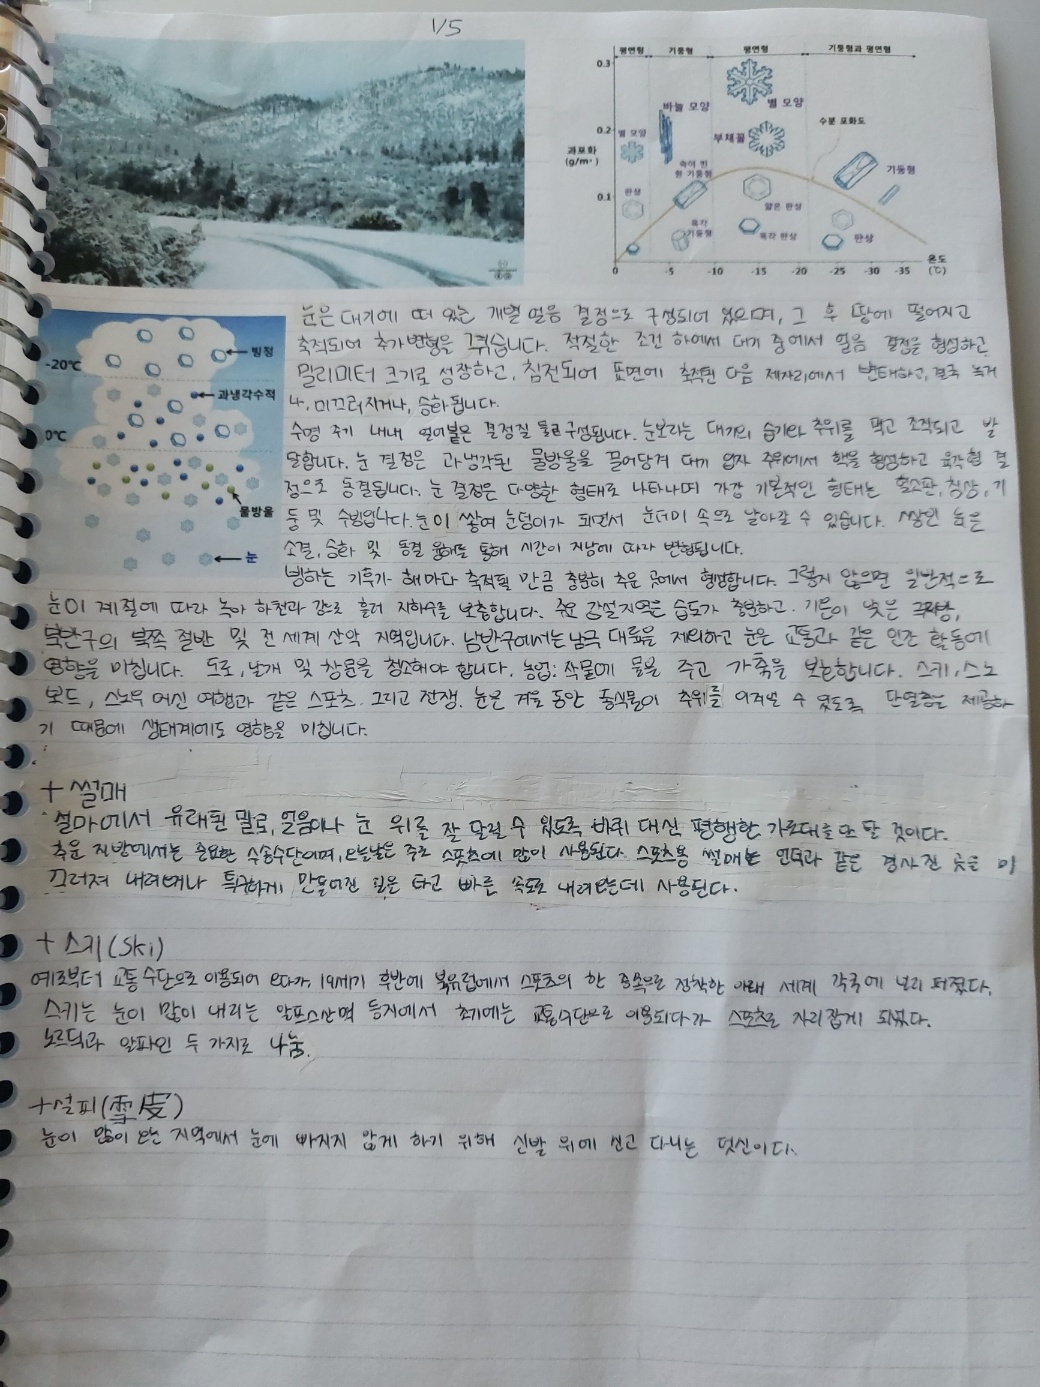 1/5
평면형 기둥형 평면형 기둥형과 평면형
0.3
바늘 모양 별 모양
수분 포화도
0.2
별 모양 부채꼴
과포화
(g/m³)
속이 빈
기둥형 기둥형
0.1
판상 얇은 판상
육각
기둥형 육각 판상 판상
0 -5 -10 -15 -20 -25 -30 -35 온도
(℃)
빙정
-20℃
과냉각수적
0℃
물방울
눈
눈은 대기에 떠 있는 개별 얼음 결정으로 구성되어 있으며, 그 후 땅에 떨어지고
축적되어 추가 변형을 겪습니다. 적절한 조건 하에서 대기 중에서 얼음 결정을 형성하고
밀리미터 크기로 성장하고, 침전되어 표면에 축적된 다음 제자리에서 변태하고, 결국 녹거
나, 미끄러지거나, 승화됩니다.
수명 주기 내내 얼어붙은 결정질 물로 구성됩니다. 눈보라는 대기의 습기와 추위를 먹고 조직되고 발
달합니다. 눈 결정은 과냉각된 물방울을 끌어당겨 대기 입자 주위에서 핵을 형성하고 육각형 결
정으로 동결됩니다. 눈 결정은 다양한 형태로 나타나며 가장 기본적인 형태는 혈소판, 침상, 기
둥 및 수빙입니다. 눈이 쌓여 눈덩이가 되면서 눈더미 속으로 날아갈 수 있습니다. 쌓인 눈은
소결, 승화 및 동결 융해를 통해 시간이 지남에 따라 변형됩니다.
빙하는 기후가 해마다 축적될 만큼 충분히 추운 곳에서 형성합니다. 그렇지 않으면 일반적으로
눈이 계절에 따라 녹아 하천과 강으로 흘러 지하수를 보충합니다. 주요 강설지역은 습도가 충분하고, 기온이 낮은 극지방,
북반구의 북쪽 절반 및 전 세계 산악 지역입니다. 남반구에서는 남극 대륙을 제외하고 눈은 교통과 같은 인간 활동에
영향을 미칩니다. 도로, 날개 및 창문을 청소해야 합니다. 농업: 작물에 물을 주고 가축을 보호합니다. 스키, 스노
보드, 스노우 머신 여행과 같은 스포츠. 그리고 전쟁. 눈은 겨울 동안 동식물이 추위를 이겨낼 수 있도록 단열층을 제공하
기 때문에 생태계에도 영향을 미칩니다.
+ 썰매
설마에서 유래된 말로, 얼음이나 눈 위를 잘 달릴 수 있도록 바퀴 대신 평행한 가로대를 단 것이다.
추운 지방에서는 중요한 수송수단이며, 오늘날은 주로 스포츠에 많이 사용된다. 스포츠용 썰매는 언덕과 같은 경사진 곳을 미
끄러져 내려오거나 특수하게 만들어진 길을 타고 빠른 속도로 내려오는데 사용된다.
+ 스키(Ski)
예로부터 교통수단으로 이용되어 오다가 19세기 후반에 북유럽에서 스포츠의 한 종목으로 정착한 이래 세계 각국에 널리 퍼졌다.
스키는 눈이 많이 내리는 알프스산맥 등지에서 초기에는 교통수단으로 이용되다가 스포츠로 자리잡게 되었다.
노르딕과 알파인 두 가지로 나눔.
+설피(雪皮)
눈이 많이 오는 지역에서 눈에 빠지지 않게 하기 위해 신발 위에 신고 다니는 덧신이다.